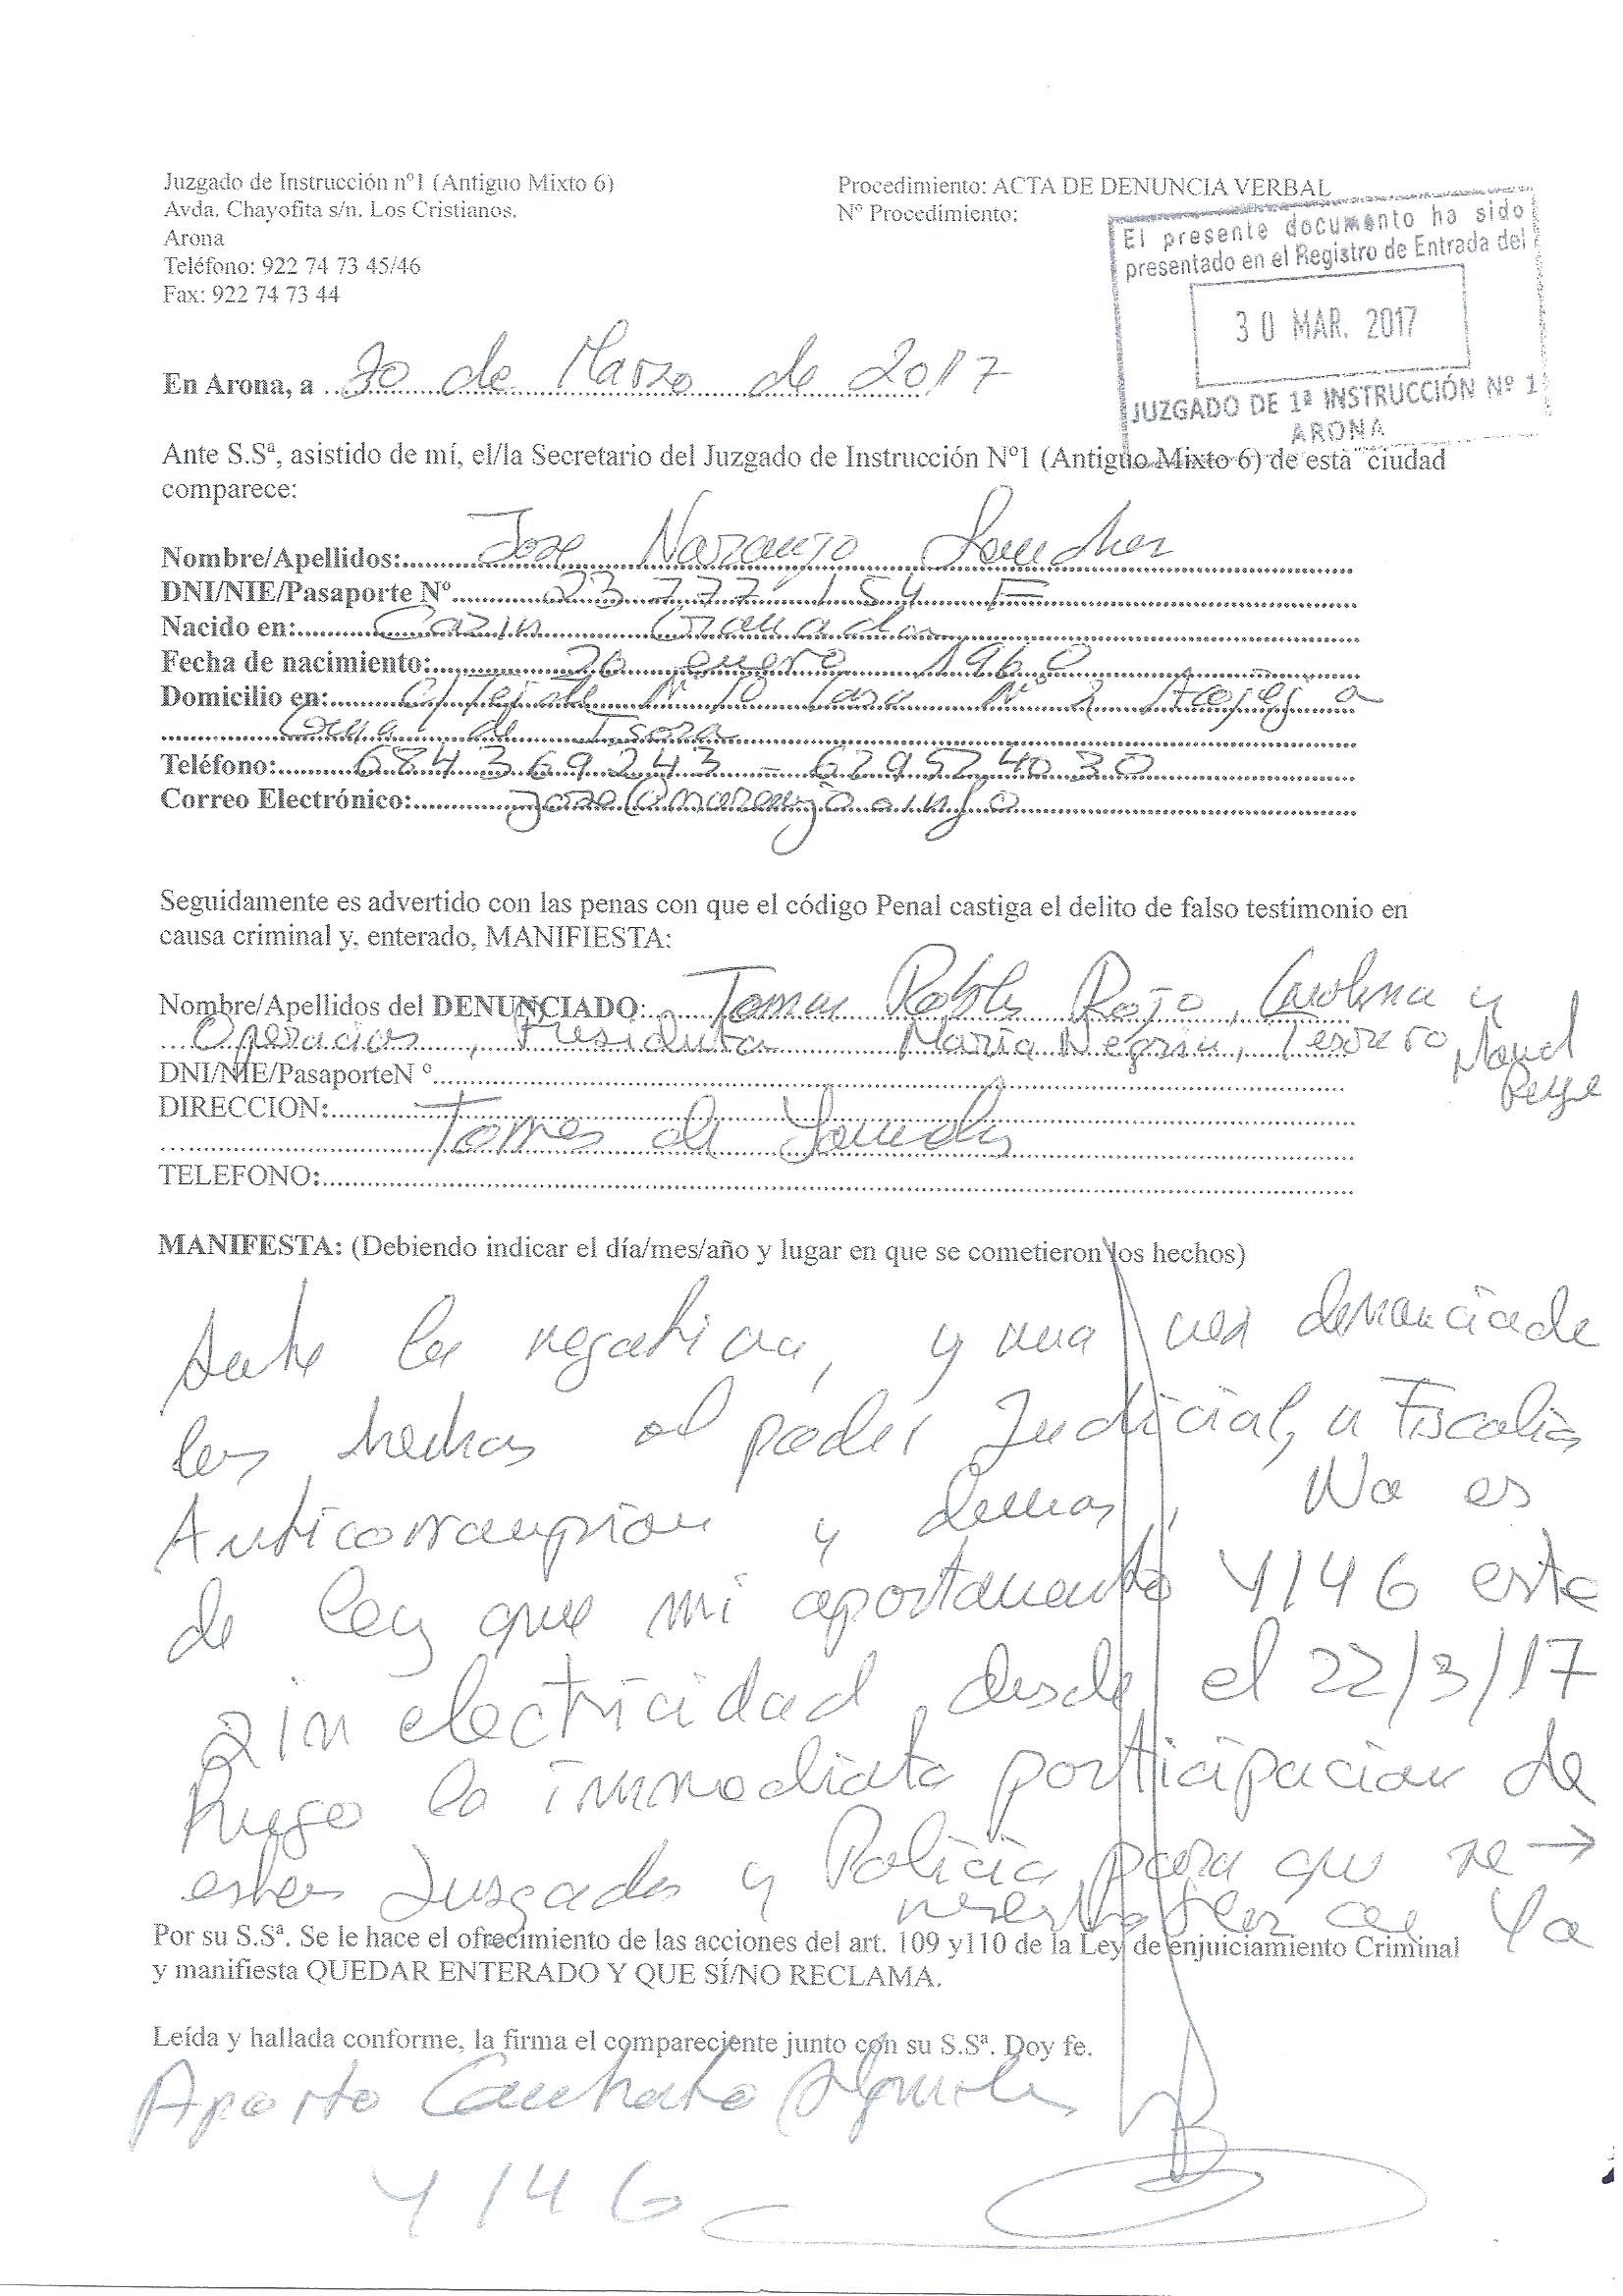 Juzgado de Instrucción nº1 (Antiguo Mixto 6)
Avda. Chayofita s/n. Los Cristianos.
Arona
Teléfono: 922 74 73 45/46
Fax: 922 74 73 44
Procedimiento: ACTA DE DENUNCIA VERBAL
Nº Procedimiento:
El presente documento ha sido
presentado en el Registro de Entrada del
30 MAR. 2017
JUZGADO DE 1ª INSTRUCCIÓN Nº 1
ARONA
En Arona, a 30 de Marzo de 2017
Ante S.Sª, asistido de mí, el/la Secretario del Juzgado de Instrucción Nº1 (Antiguo Mixto 6) de esta ciudad
comparece:
Nombre/Apellidos: Jose Naranjo Sanchez
DNI/NIE/Pasaporte Nº 23.777.154 F
Nacido en: Granada
Fecha de nacimiento: enero 1960
Domicilio en: Nº 10 Casa Nº 2
de Isora
Teléfono: 684369243 - 629524030
Correo Electrónico:
Seguidamente es advertido con las penas con que el código Penal castiga el delito de falso testimonio en
causa criminal y, enterado, MANIFIESTA:
Nombre/Apellidos del DENUNCIADO: Tomas Robles Rojo, Carolina y
Operacios, Presidenta Maria Negrin, Tesorero
DNI/NIE/PasaporteN º
DIRECCION:
Torres de
TELEFONO:
MANIFESTA: (Debiendo indicar el día/mes/año y lugar en que se cometieron los hechos)
Ante la negativa, y una vez denunciade
los hechos al poder Judicial, a Fiscalia
Anticorrupcion y demas, No es
de ley que mi apartamento 4146 este
sin electricidad desde el 22/3/17
Ruego la inmediata participacion de
estos Juzgados y Policia para que se →
Ya
Por su S.Sª. Se le hace el ofrecimiento de las acciones del art. 109 y110 de la Ley de enjuiciamiento Criminal
y manifiesta QUEDAR ENTERADO Y QUE SÍ/NO RECLAMA.
Leída y hallada conforme, la firma el compareciente junto con su S.Sª. Doy fe.
Aporto Contrato Alquiler
4146